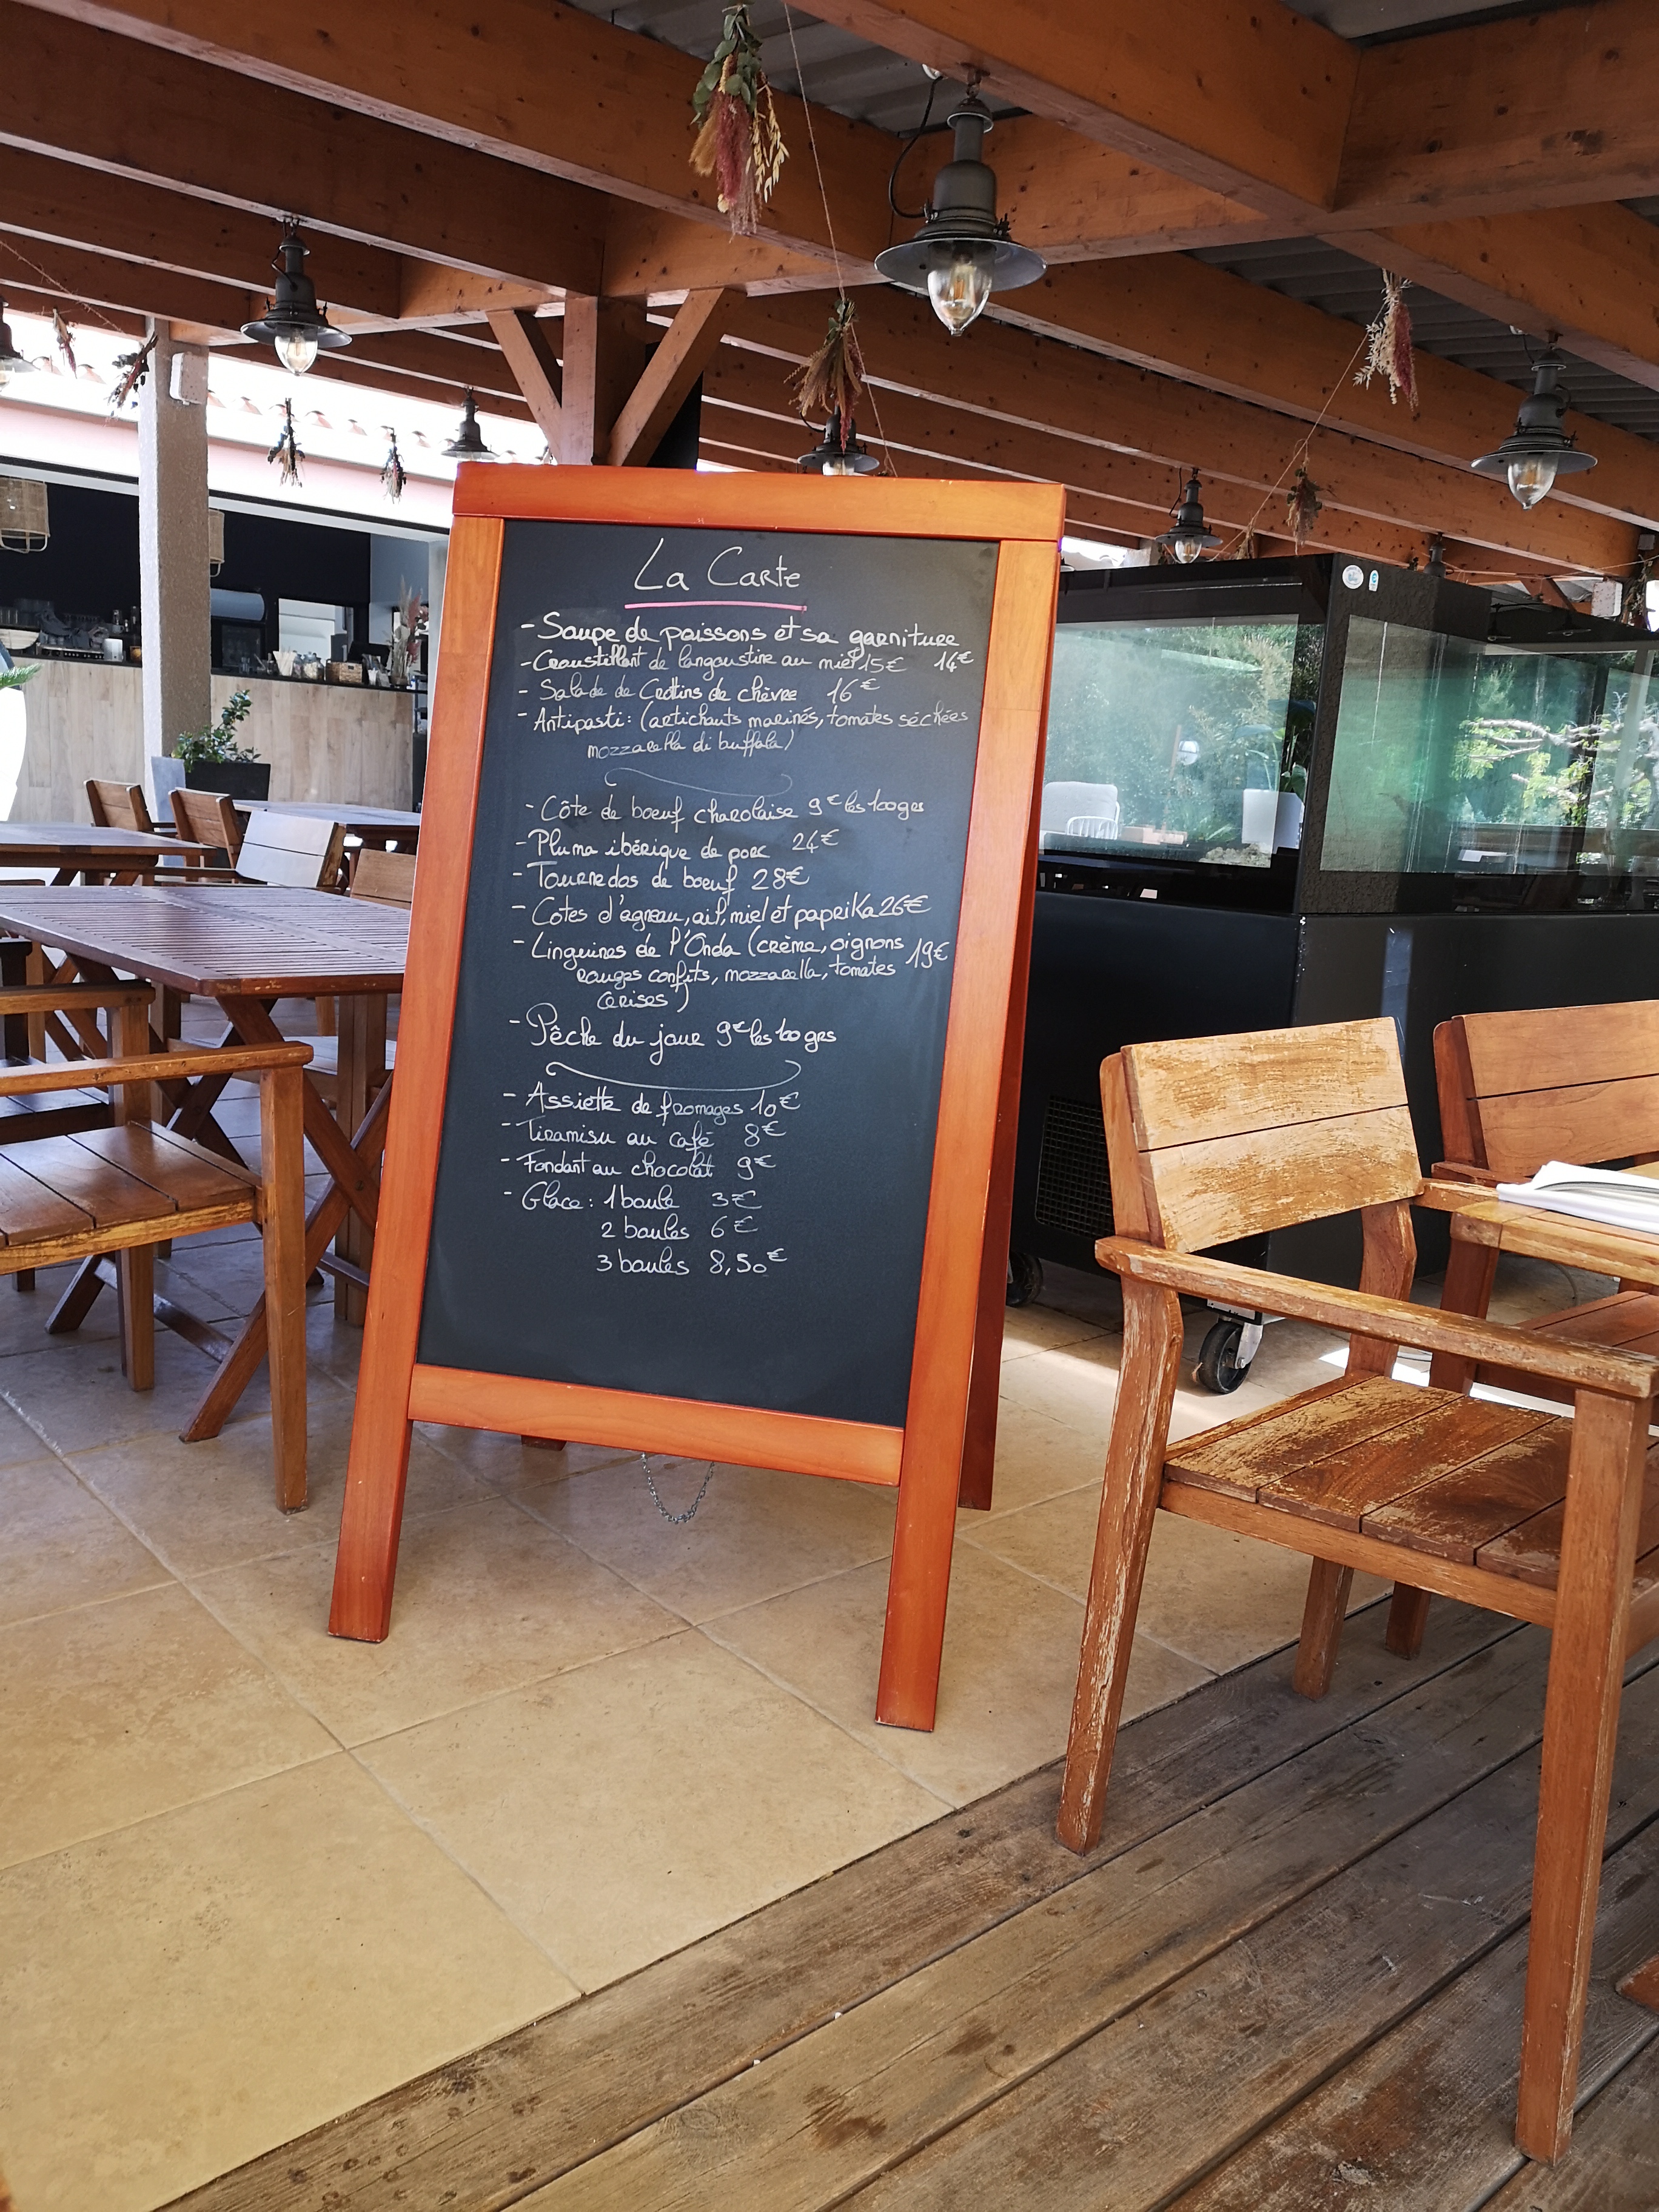 La Carte
- Soupe de poissons et sa garniture
- Croustillant de langoustine au miel 15€ 14€
- Salade de Crottins de chèvre 16€
- Antipasti: (artichauts marinés, tomates séchées
mozzarella di buffala)
- Côte de boeuf charolaise 9€ les 100grs
- Pluma ibérique de porc 24€
- Tournedos de boeuf 28€
- Côtes d'agneau, ail, miel et paprika 26€
- Linguines de l'Onda (crème, oignons 19€
rouges confits, mozzarella, tomates
cerises)
- Pêche du jour 9€ les 100 grs
- Assiette de fromages 10€
- Tiramisu au café 8€
- Fondant au chocolat 9€
- Glace: 1 boule 3€
2 boules 6€
3 boules 8,50€